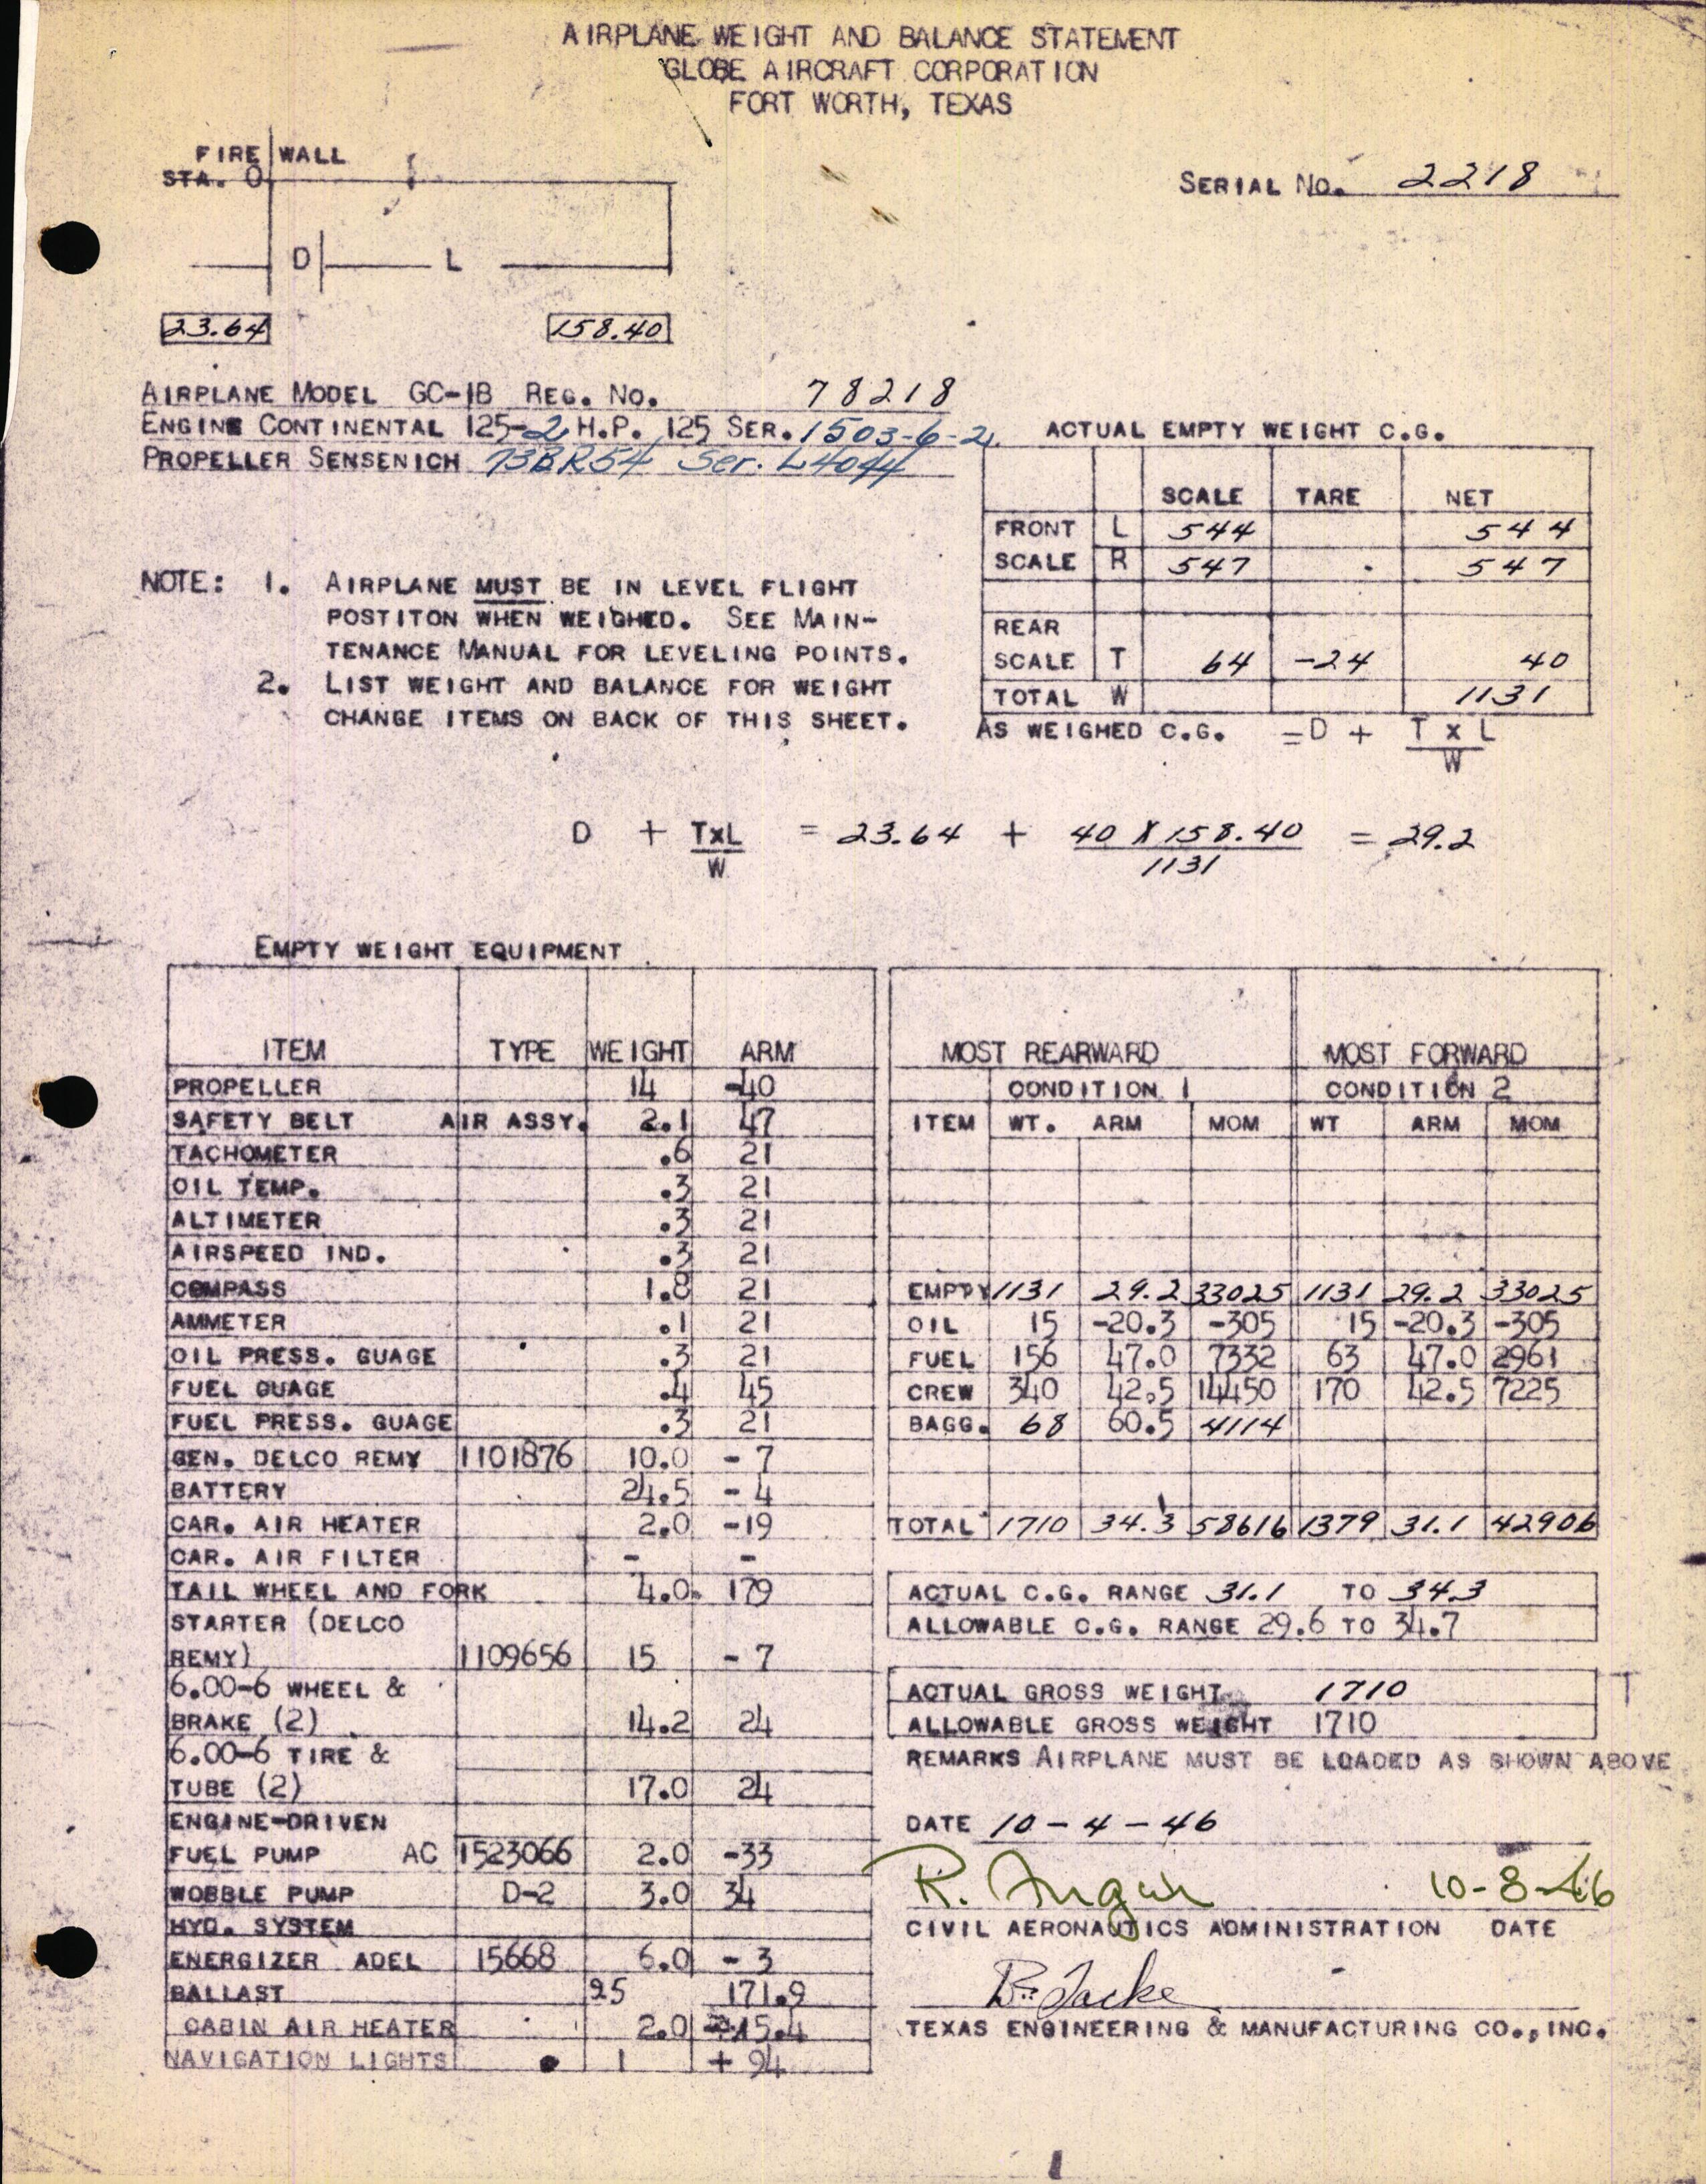 AIRPLANE WEIGHT AND BALANCE STATEMENT
GLOBE AIRCRAFT CORPORATION
FORT WORTH, TEXAS
FIRE WALL
STA. 0
SERIAL NO. 2218
D L
23.64 158.40
AIRPLANE MODEL GC-1B REG. NO. 78218
ENGINE CONTINENTAL 125-2 H.P. 125 SER. 1503-6-2
PROPELLER SENSENICH 73BR54 Ser. L4044
ACTUAL EMPTY WEIGHT C.G.
SCALE TARE NET
FRONT L 544 544
SCALE R 547 547
REAR
SCALE T 64 -24 40
TOTAL W 1131
AS WEIGHED C.G. = D + T x L
W
NOTE: 1. AIRPLANE MUST BE IN LEVEL FLIGHT
POSTITON WHEN WEIGHED. SEE MAIN-
TENANCE MANUAL FOR LEVELING POINTS.
2. LIST WEIGHT AND BALANCE FOR WEIGHT
CHANGE ITEMS ON BACK OF THIS SHEET.
D + TxL = 23.64 + 40 X 158.40 = 29.2
W 1131
EMPTY WEIGHT EQUIPMENT
ITEM TYPE WEIGHT ARM
PROPELLER 14 -40
SAFETY BELT AIR ASSY. 2.1 47
TACHOMETER .6 21
OIL TEMP. .3 21
ALTIMETER .3 21
AIRSPEED IND. .3 21
COMPASS 1.8 21
AMMETER .1 21
OIL PRESS. GUAGE .3 21
FUEL GUAGE .4 45
FUEL PRESS. GUAGE .3 21
GEN. DELCO REMY 1101876 10.0 - 7
BATTERY 24.5 - 4
CAR. AIR HEATER 2.0 -19
CAR. AIR FILTER - -
TAIL WHEEL AND FORK 4.0 179
STARTER (DELCO
REMY) 1109656 15 - 7
6.00-6 WHEEL &
BRAKE (2) 14.2 24
6.00-6 TIRE &
TUBE (2) 17.0 24
ENGINE-DRIVEN
FUEL PUMP AC 1523066 2.0 -33
WOBBLE PUMP D-2 3.0 34
HYD. SYSTEM
ENERGIZER ADEL 15668 6.0 - 3
BALLAST 25 171.9
CABIN AIR HEATER 2.0 15.4
NAVIGATION LIGHTS 1 + 94
MOST REARWARD MOST FORWARD
CONDITION 1 CONDITION 2
ITEM WT. ARM MOM WT ARM MOM
EMPTY 1131 29.2 33025 1131 29.2 33025
OIL 15 -20.3 -305 15 -20.3 -305
FUEL 156 47.0 7332 63 47.0 2961
CREW 340 42.5 14450 170 42.5 7225
BAGG. 68 60.5 4114
TOTAL 1710 34.3 58616 1379 31.1 42906
ACTUAL C.G. RANGE 31.1 TO 34.3
ALLOWABLE C.G. RANGE 29.6 TO 34.7
ACTUAL GROSS WEIGHT 1710
ALLOWABLE GROSS WEIGHT 1710
REMARKS AIRPLANE MUST BE LOADED AS SHOWN ABOVE
DATE 10-4-46
R. 10-8-46
CIVIL AERONAUTICS ADMINISTRATION DATE
TEXAS ENGINEERING & MANUFACTURING CO., INC.